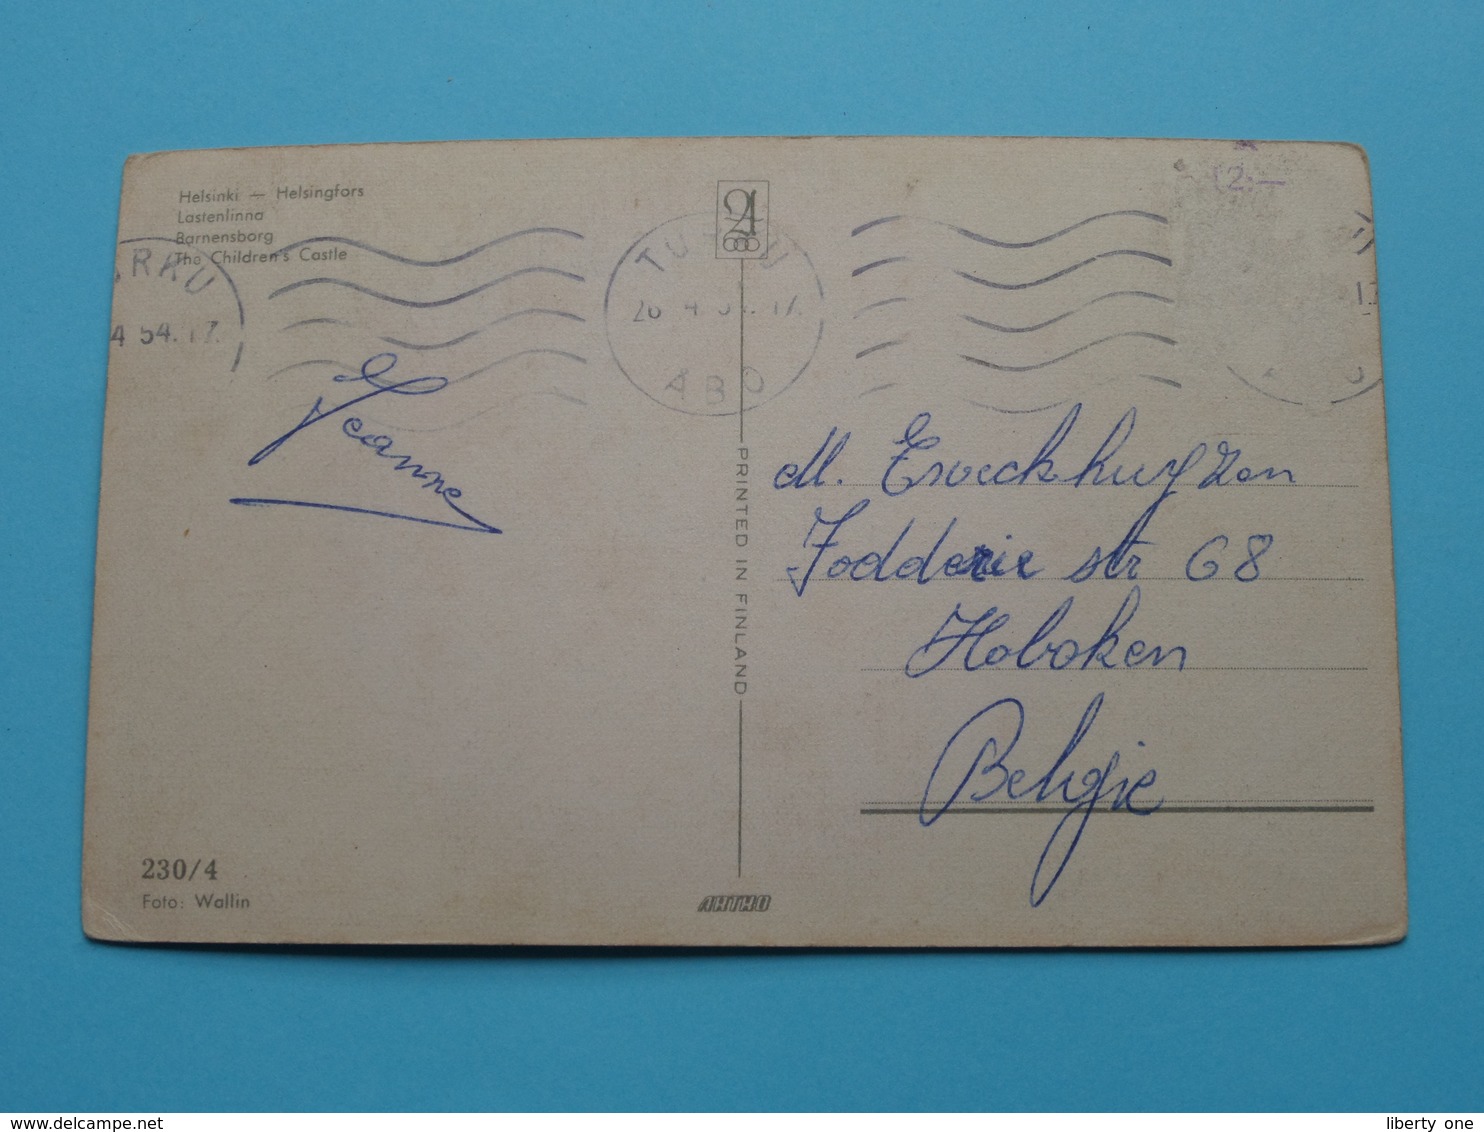 Helsinki — Helsingfors
Lastenlinna
Barnensborg
The Children's Castle
4 54. 17.
TURKU
26 4 54. 17.
ÅBO
2.—
Jeanne
PRINTED IN FINLAND
Hoboken
Belgie
str 68
230/4
Foto: Wallin
delcampe.net
liberty one